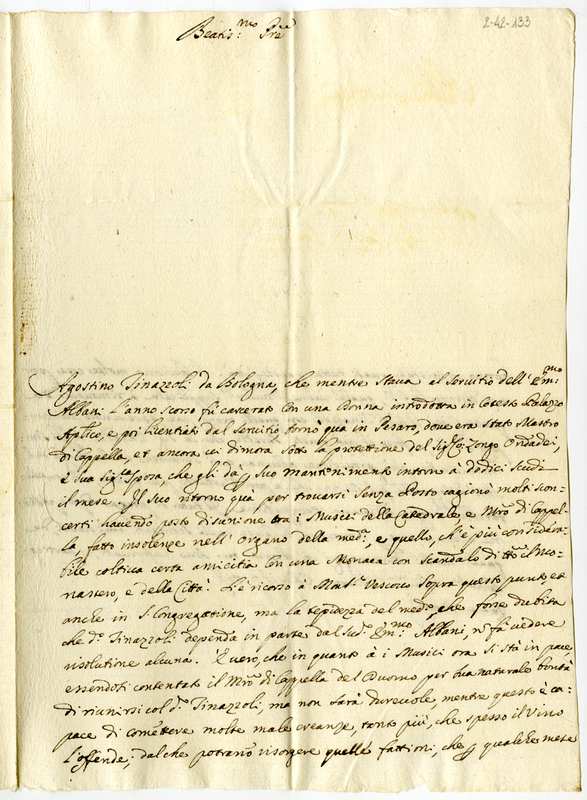 2-42-133
Beatis:mo Pre
Agostino Tinazzoli da Bologna, che mentre staua al seruitio dell' Em:mo
Albani l'anno scorso fù carcerato con una Donna introdotta in cotesto Palazzo
Aplico, e poi licentiato dal seruitio tornò quà in Pesaro, doue era stato Mastro
di Cappella, et ancora ui dimora sotto la protettione del Sig:r Co: Zongo Ondedei,
è sua Sig:ra Sposa, che gli dà p suo mantenimento intorn à dodici scudi
il mese. Il suo ritorno quà per trouarsi senza Posto cagionò molti scon-
certi hauendo posto disunione tra i Musici della Catedrale e Mro di Cappel-
la, fatto insolenze nell' organo della med:a, e quello, ch'è più considera-
bile coltiua certa amicitia con una Monaca con scandalo di tto il Mo-
nastero, e della Città. Si è ricorso à Mons:r Vescouo sopra questo punto, et
anche in S. Congregatione, ma la tepidezza del med:o, che forse dubita
che do Tinazzoli dependa in parte dal Sud:o Em:mo Albani, nõ fà uedere
risolutione alcuna. È uero, che in quanto à i Musici ora si stà in pace
essendosi contentato il Mro di Cappella del Duomo per sua naturale bontà
di riunirsi col do Tinazzoli, ma non sarà dureuole, mentre questo è ca-
pace di comettere molte male creanze, tanto più, che spesso il Vino
l'offende; dal che potranno risorgere quelle fattioni, che p qualche mese